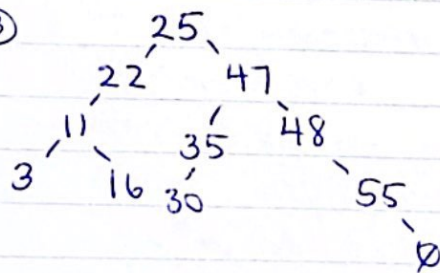 25
22 47
11 35 48
3 16 30 55